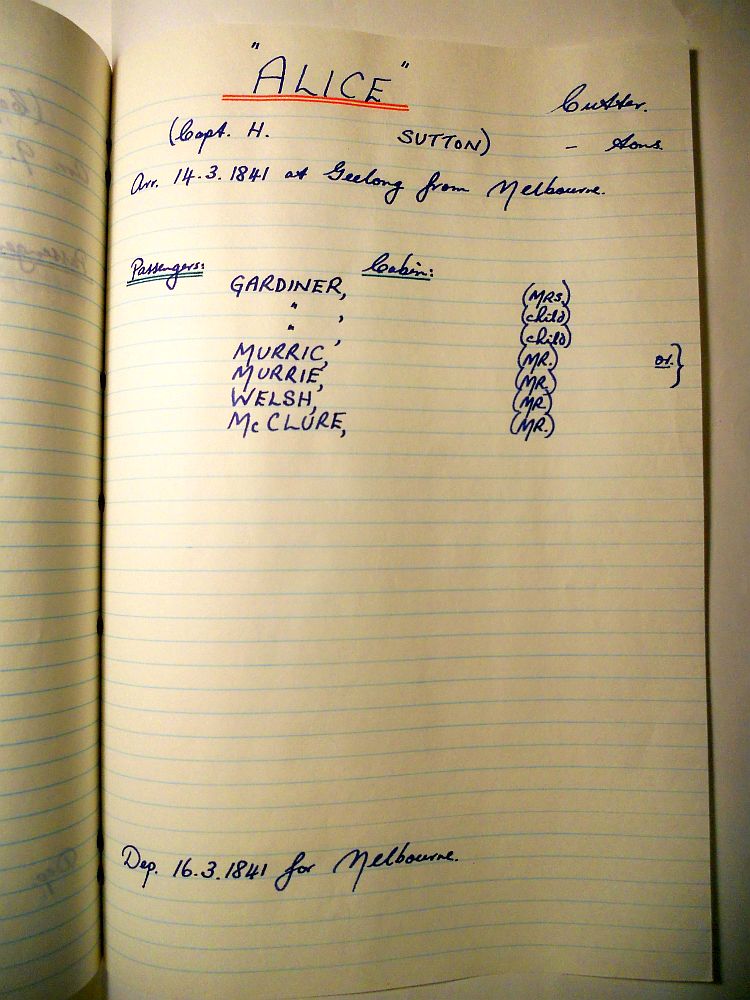 "ALICE"
Cutter.
(Capt. H. SUTTON) - tons.
Arr. 14.3.1841 at Geelong from Melbourne.
Passengers: Cabin:
GARDINER, (MRS.)
" , (child)
" , (child)
MURRIC, (MR.) or }
MURRIE, (MR.)
WELSH, (MR)
McCLURE, (MR.)
Dep. 16.3.1841 for Melbourne.